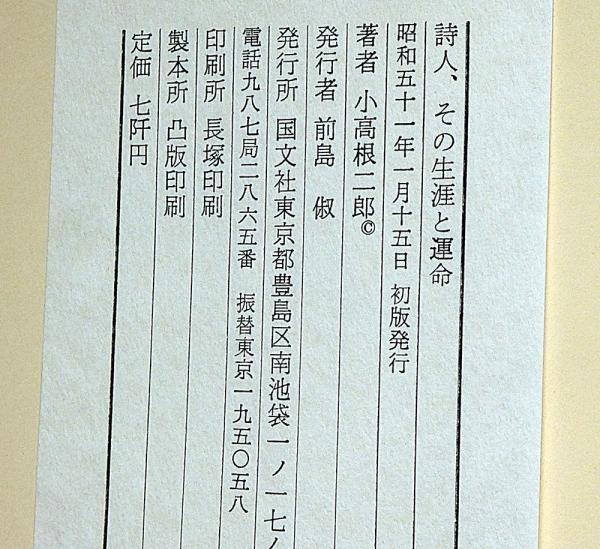 詩人、その生涯と運命
昭和五十一年一月十五日 初版発行
著者 小高根二郎©
発行者 前島 俶
発行所 国文社東京都豊島区南池袋一ノ一七ノ
電話九八七局二八六五番 振替東京一九五〇五八
印刷所 長塚印刷
製本所 凸版印刷
定価 七阡円